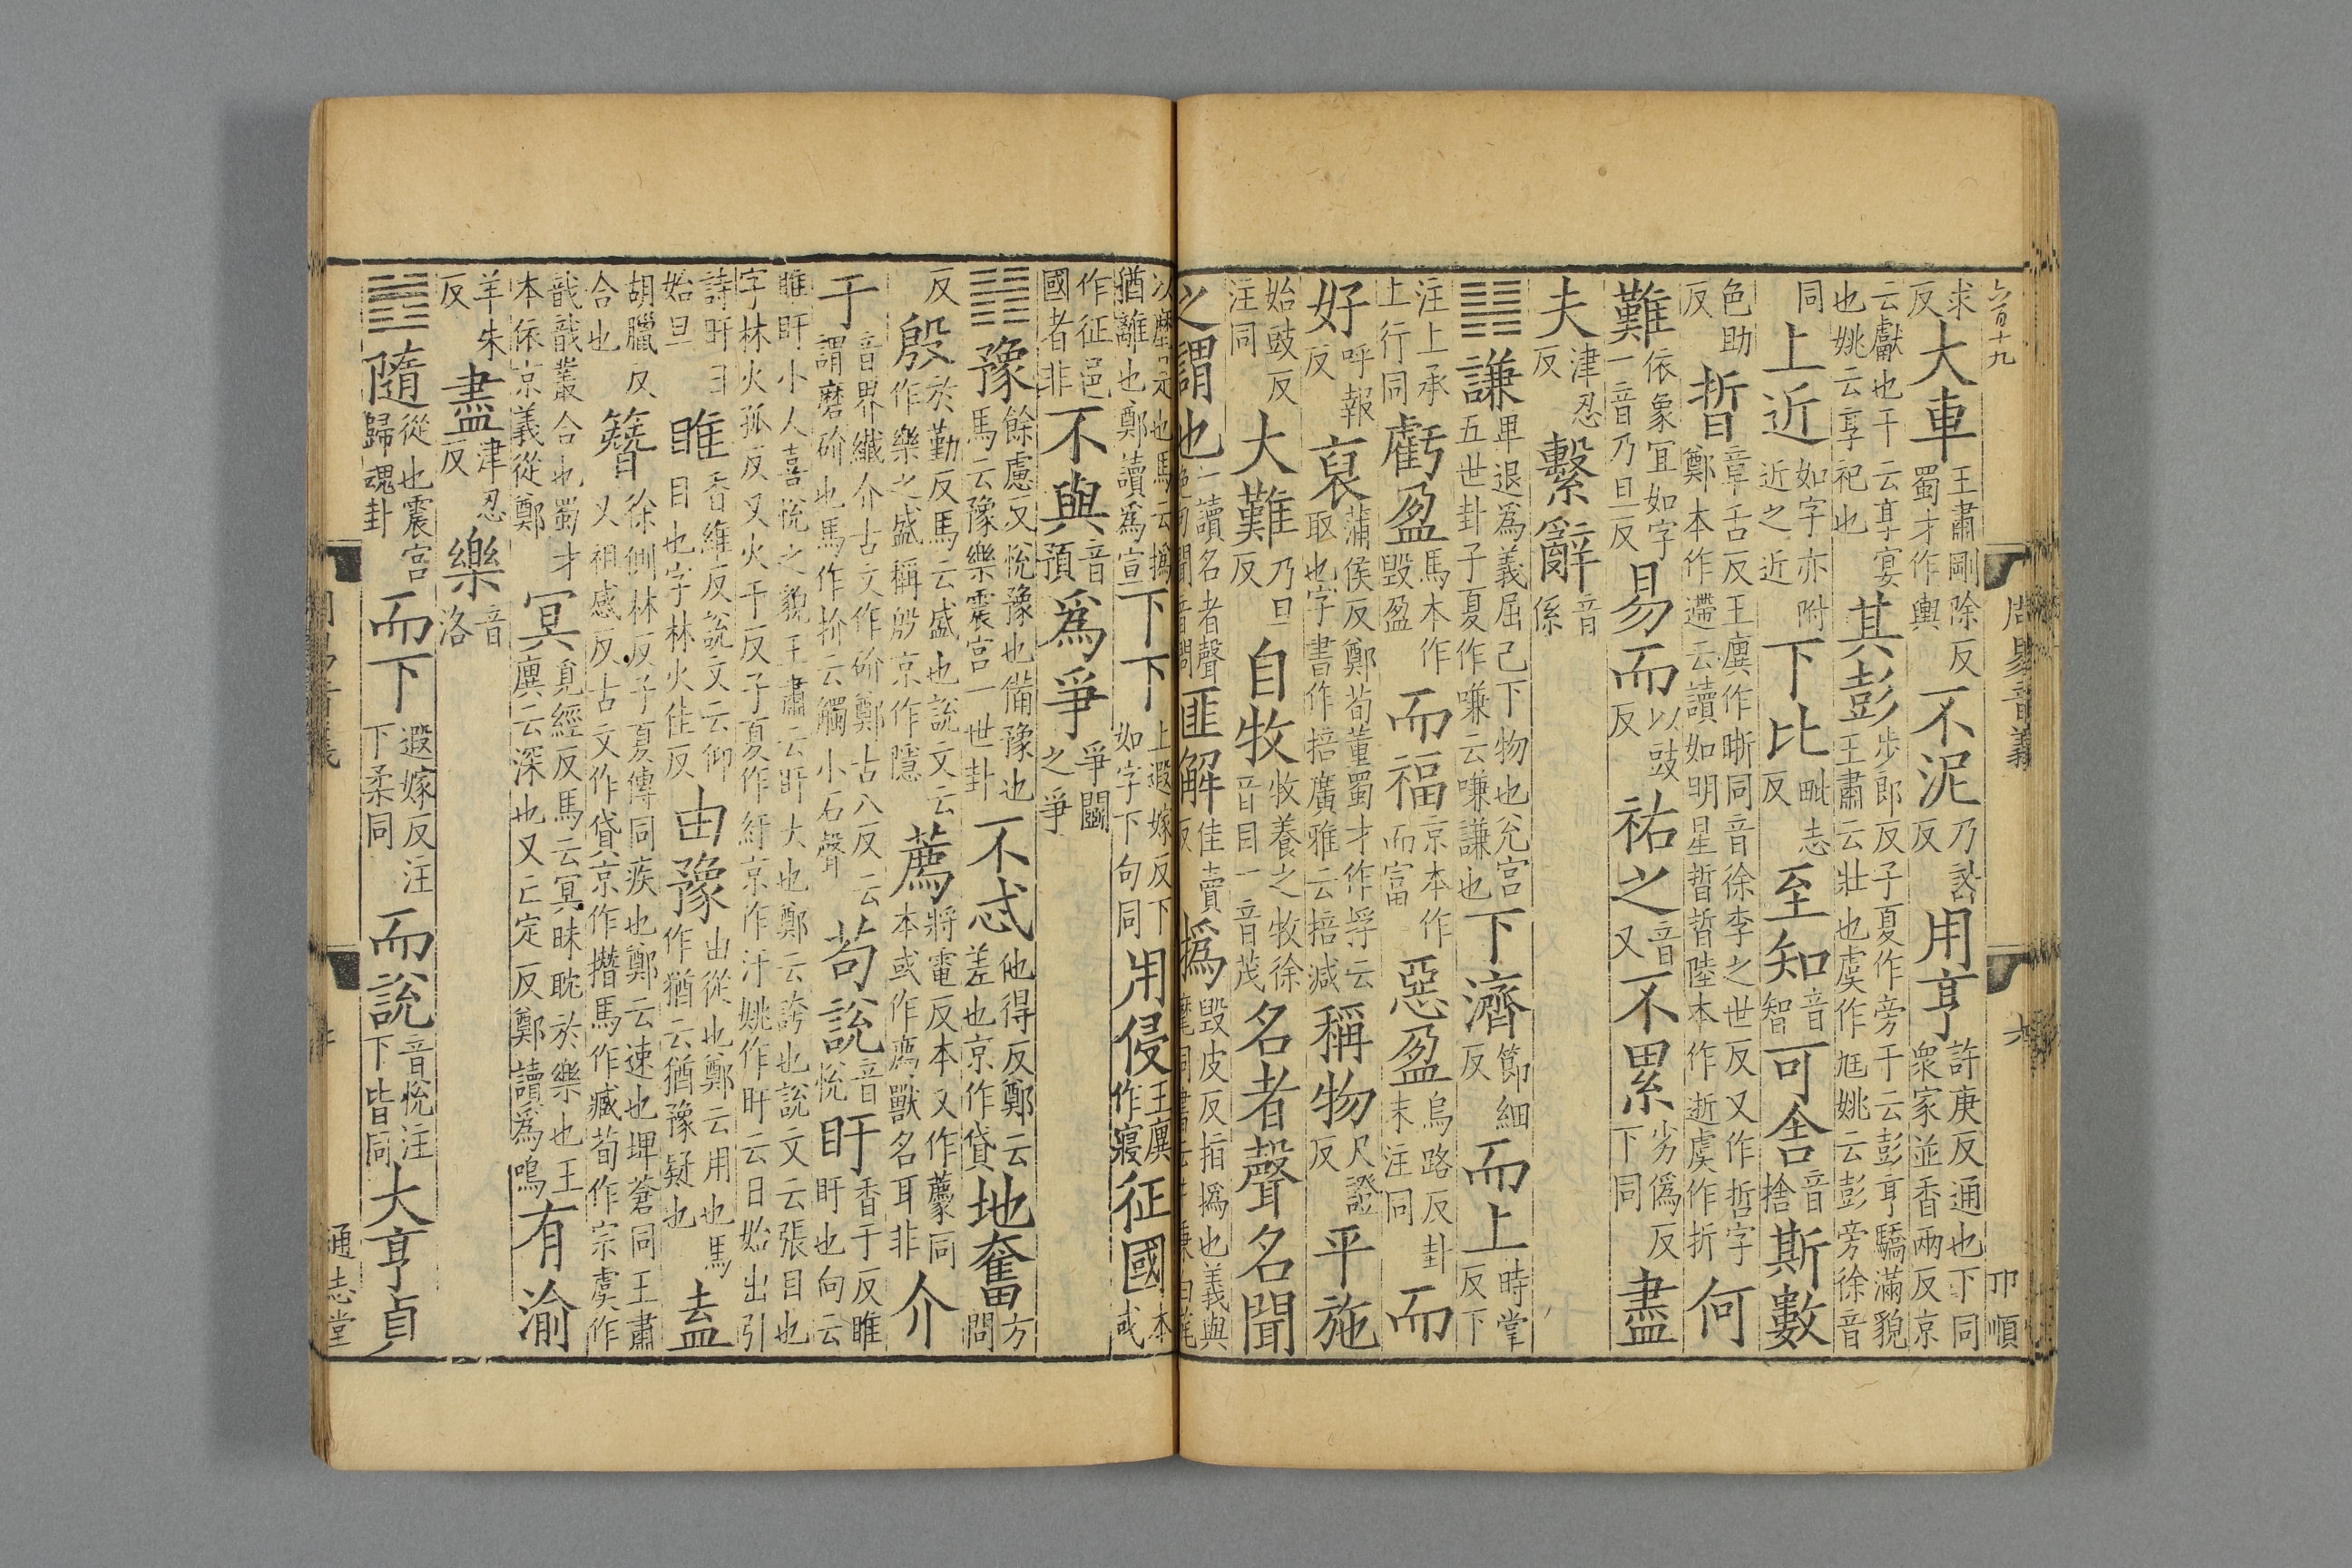 六百十九 周易音義 六 卭順
求反大車王肅剛除反蜀才作輿不泥乃計反用亨許庚反通也下同衆家並香兩反京
云獻也干云享宴也姚云享祀也其彭步郎反子夏作旁干云彭亨驕滿貌王肅云壯也虞作尫姚云彭旁徐音
同上近如字亦附近之近下比毗志反至知音智可舍音捨斯數
色助反晢章舌反王廙作晣同音徐李之世反又作哲字鄭本作遰云讀如明星晢晢陸本作逝虞作折何
難依象宜如字一音乃旦反易而以豉反祐之音又不累劣僞反下同盡
夫津忍反繫辭音係
䷎謙卑退爲義屈己下物也兊宮五世卦子夏作嗛云嗛謙也下濟節細反而上時掌反下
注上承上行同虧盈馬本作毀盈而福京本作而富惡盈烏路反卦末注同而
好呼報反裒蒲侯反鄭荀董蜀才作捊云取也字書作掊廣雅云掊減稱物尺證反平施
始豉反注同大難乃旦反自牧牧養之牧徐音目一音茂名者聲名聞
之謂也一讀名者聲絶句聞音問匪解佳賣反撝毀皮反指撝也義與麾同書云
是也馬云撝猶離也鄭讀爲宣下下上遐嫁反下如字下句同用侵王廙作寑征國本或
作征邑國者非不與音預爲爭爭鬭之爭
䷏豫餘慮反悅豫也備豫也馬云豫樂震宮一世卦不忒他得反鄭云差也京作貸地奮方問
反殷於勤反馬云盛也說文云作樂之盛稱殷京作隱薦將電反本又作𧂐同本或作廌獸名耳非介
于音界纖介古文作砎鄭古八反云謂磨砎也馬作扴云觸小石聲苟說音悅盱香于反睢盱也向云
睢盱小人喜悅之貌王肅云盱大也鄭云誇也說文云張目也字林火孤反又火于反子夏作紆京作汙姚作旴云日始出引
詩旴日始旦睢香維反說文云仰目也字林火佳反由豫由從也鄭云用也馬作猶云猶豫疑也盍
胡臘反合也簪徐側林反子夏傳同疾也鄭云速也埤蒼同王肅又祖感反古文作貸京作撍馬作臧荀作宗虞作
戠戠叢合也蜀才本依京義從鄭冥覓經反馬云冥昧耽於樂也王廙云深也又亡定反鄭讀爲鳴有渝
羊朱反盡津忍反樂音洛
䷐隨從也震宮歸魂卦而下遐嫁反注下柔同而說音悅注下皆同大亨貞
通志堂